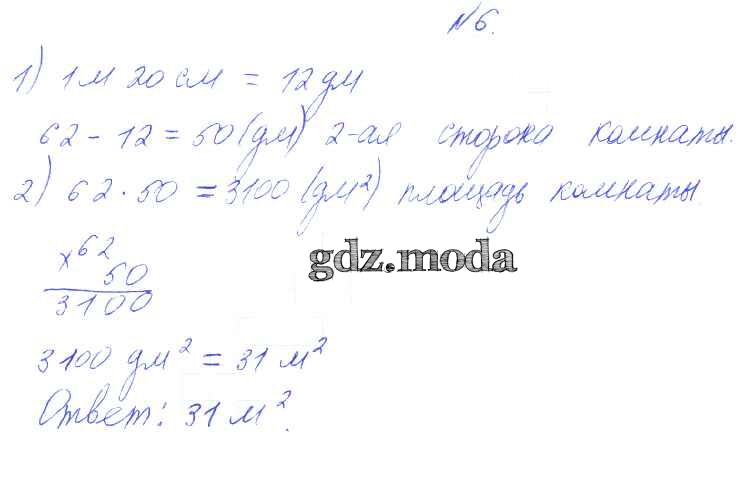 №6.
1) 1м 20 см = 12 дм
62 - 12 = 50 (дм) 2-ая сторона комнаты.
2) 62 · 50 = 3100 (дм²) площадь комнаты.
× 62
50
3100
gdz.moda
3100 дм² = 31 м²
Ответ: 31 м².